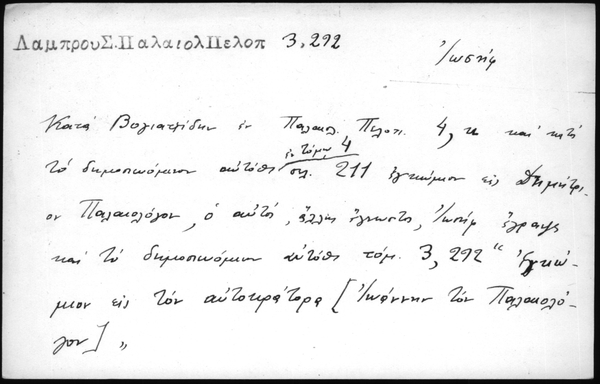 Λαμπρου Σ. Παλαιολ Πελοπ 3, 292
Ἰωσήφ
Κατὰ Βογιατζίδην ἐν Παλαιολ. Πελοπ. 4, κ καὶ κατὰ
ἐν τόμῳ 4
τὸ δημοσιευόμενον αὐτόθι σελ. 211 ἐγκώμιον εἰς Δημήτρι-
ον Παλαιολόγον, ὁ αὐτός, ἄλλως ἄγνωστος, Ἰωσήφ ἔγραψε
καὶ τὸ δημοσιευόμενον αὐτόθι τόμ. 3, 292 “Ἐγκώ-
μιον εἰς τὸν αὐτοκράτορα [Ἰωάννην τὸν Παλαιολό-
γον]„